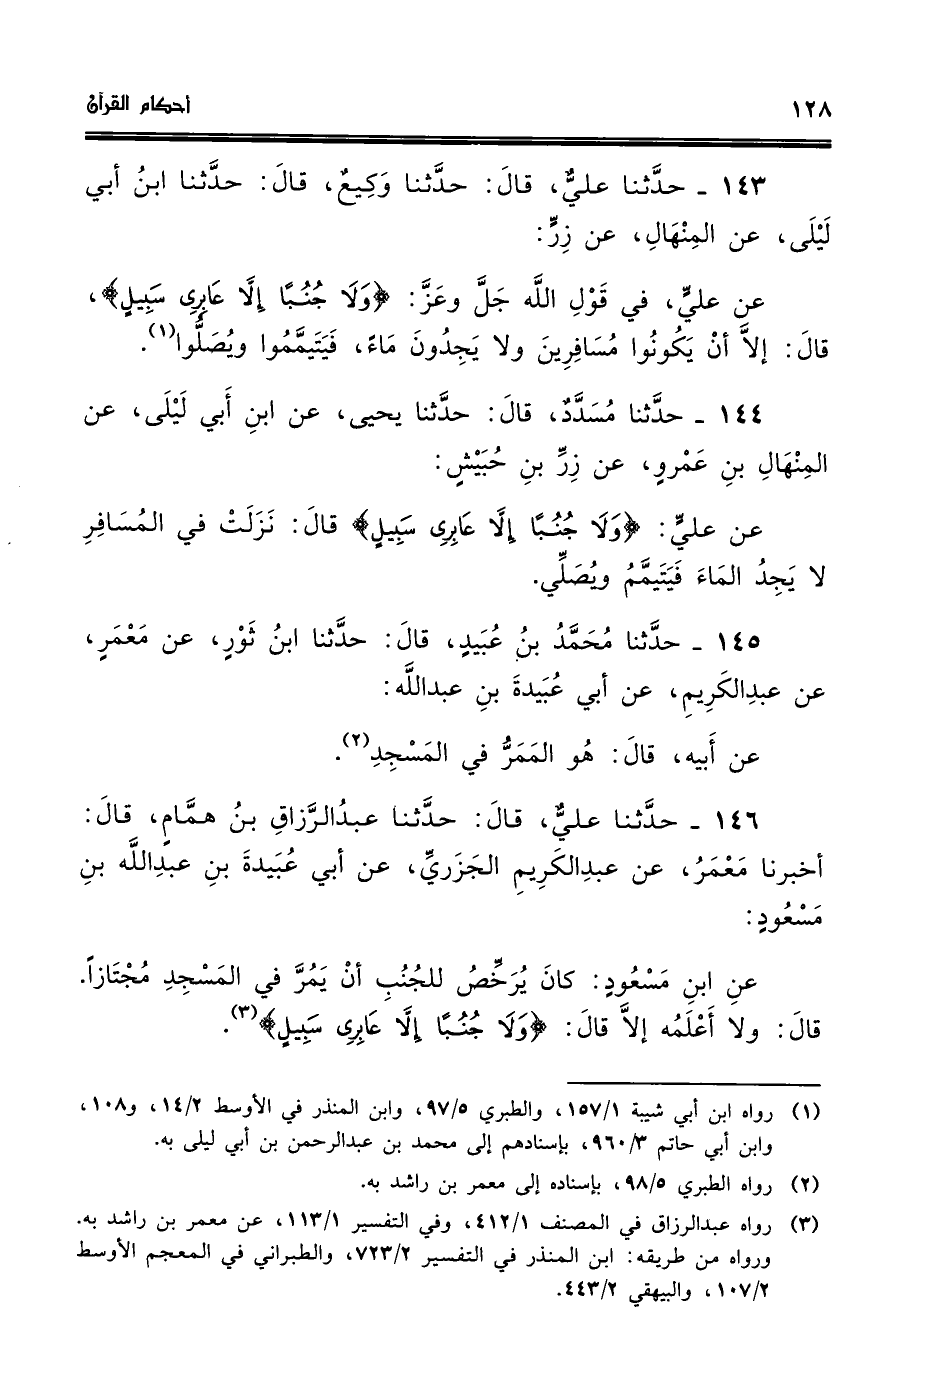 ١٢٨ أحكام القرآن
١٤٣ ـ حدَّثنا عليٌّ، قالَ: حدَّثنا وَكِيعٌ، قالَ: حدَّثنا ابنُ أبي
لَيْلَى، عن المِنْهَالِ، عن زِرٍّ:
عن عليٍّ، في قَوْلِ اللَّه جَلَّ وعَزَّ: ﴿وَلَا جُنُبًا إِلَّا عَابِرِى سَبِيلٍ﴾،
قالَ: إلاَّ أنْ يَكُونُوا مُسَافِرِينَ ولا يَجِدُونَ مَاءً، فَيَتَيمَّمُوا ويُصَلُّوا(١).
١٤٤ ـ حدَّثنا مُسَدَّدٌ، قالَ: حدَّثنا يحيى، عن ابنِ أَبي لَيْلَى، عن
المِنْهَالِ بنِ عَمْروٍ، عن زِرِّ بنِ حُبَيْشٍ:
عن عليٍّ: ﴿وَلَا جُنُبًا إِلَّا عَابِرِى سَبِيلٍ﴾ قالَ: نَزَلَتْ في المُسَافِرِ
لا يَجِدُ المَاءَ فَيَتَيمَّمُ ويُصَلِّي.
١٤٥ ـ حدَّثنا مُحَمَّدُ بنُ عُبَيدٍ، قالَ: حدَّثنا ابنُ ثَوْرٍ، عن مَعْمَرٍ،
عن عبدِالكَرِيمِ، عن أبي عُبَيدةَ بنِ عبداللَّه:
عن أَبيه، قالَ: هُو المَمَرُّ في المَسْجِدِ(٢).
١٤٦ ـ حدَّثنا عليٌّ، قالَ: حدَّثنا عبدُالرَّزاقِ بنُ همَّامٍ، قالَ:
أخبرنا مَعْمَرُ، عن عبدِالكَرِيمِ الجَزَريِّ، عن أبي عُبَيدةَ بنِ عبدِاللَّه بنِ
مَسْعُودٍ:
عنِ ابنِ مَسْعُودٍ: كانَ يُرَخِّصُ للجُنُبِ أنْ يَمُرَّ في المَسْجِدِ مُجْتَازاً.
قالَ: ولا أَعْلَمُه إلاَّ قالَ: ﴿وَلَا جُنُبًا إِلَّا عَابِرِى سَبِيلٍ﴾(٣).
(١) رواه ابن أبي شيبة ١٥٧/١، والطبري ٩٧/٥، وابن المنذر في الأوسط ١٤/٢، و١٠٨،
وابن أبي حاتم ٩٦٠/٣، بإسنادهم إلى محمد بن عبدالرحمن بن أبي ليلى به.
(٢) رواه الطبري ٩٨/٥، بإسناده إلى معمر بن راشد به.
(٣) رواه عبدالرزاق في المصنف ٤١٢/١، وفي التفسير ١١٣/١، عن معمر بن راشد به.
ورواه من طريقه: ابن المنذر في التفسير ٧٢٣/٢، والطبراني في المعجم الأوسط
١٠٧/٢، والبيهقي ٤٤٣/٢.